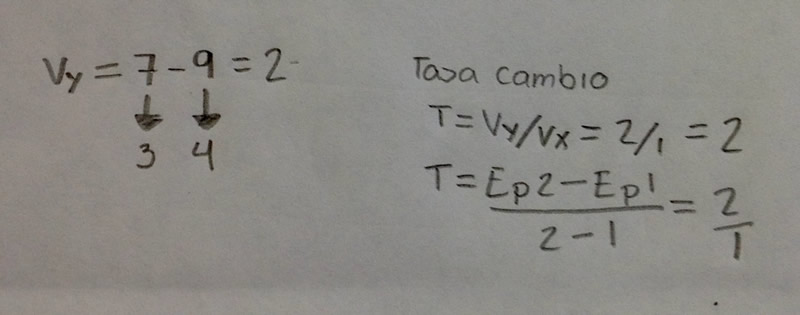 Vy = 7 - 9 = 2
↓ ↓
3 4
Tasa cambio
T = Vy/Vx = 2/1 = 2
T = Ep2 - Ep1 = 2
2 - 1 1